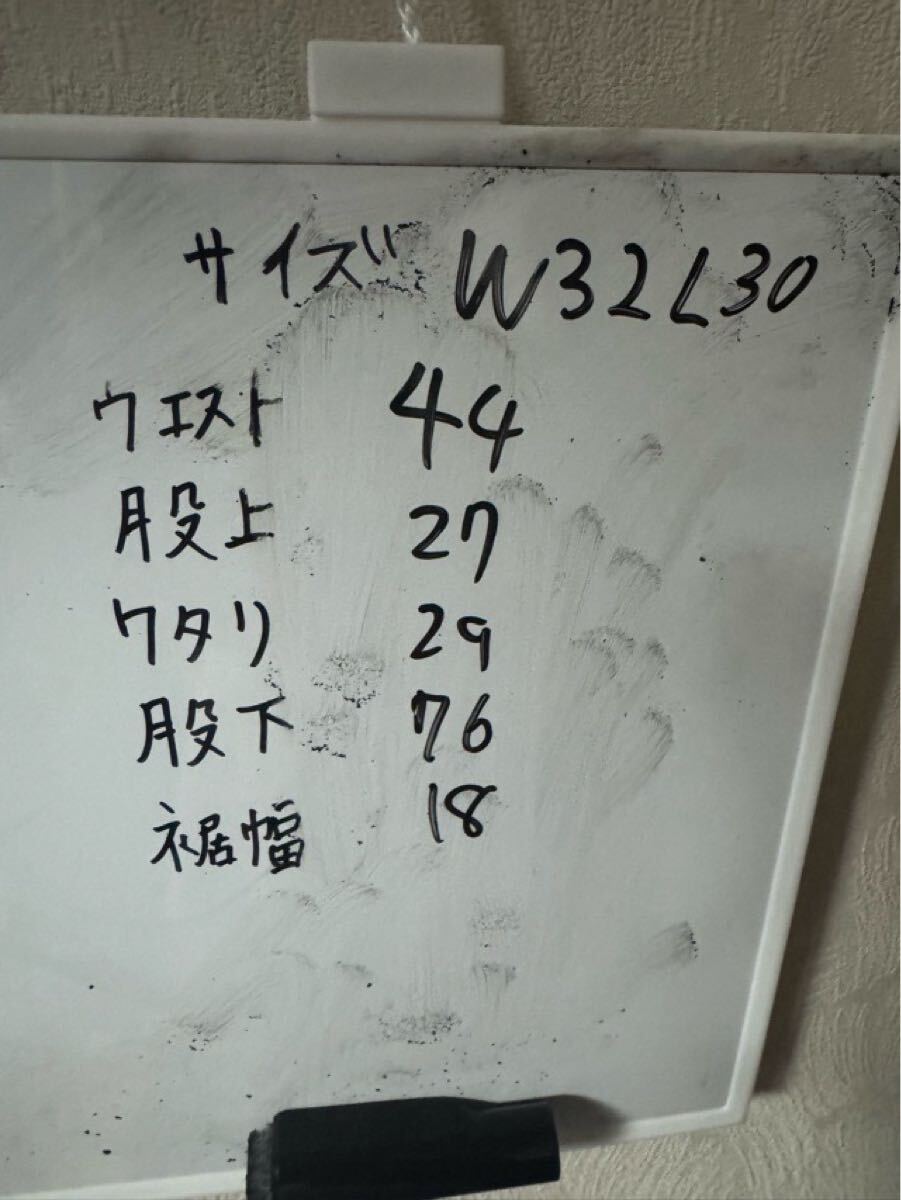 サイズ W32 L30
ウエスト 44
股上 27
ワタリ 29
股下 76
裾幅 18